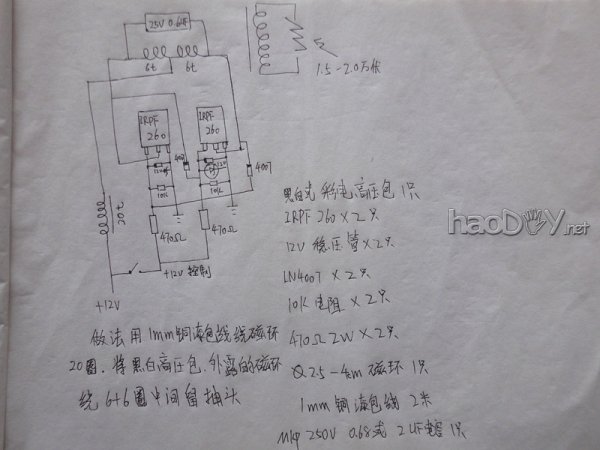 25V 0.68UF
6t 6t
1.5-2.0万伏
IRPF
260
IRPF
260
4007
10K
10K
20t
470Ω
470Ω
+12V 控制
+12V
黑白或彩电高压包 1只
IRPF 260×2只
12V 稳压管×2只
IN4007×2只
10K 电阻×2只
470Ω 2W×2只
1只
1mm铜漆包线 2米
MKP 250V 0.68或 2UF电容 1只
做法用1mm铜漆包线绕磁环
20圈.将黑白高压包.外露的磁环
绕6+6圈中间留抽头
haoDIY.net